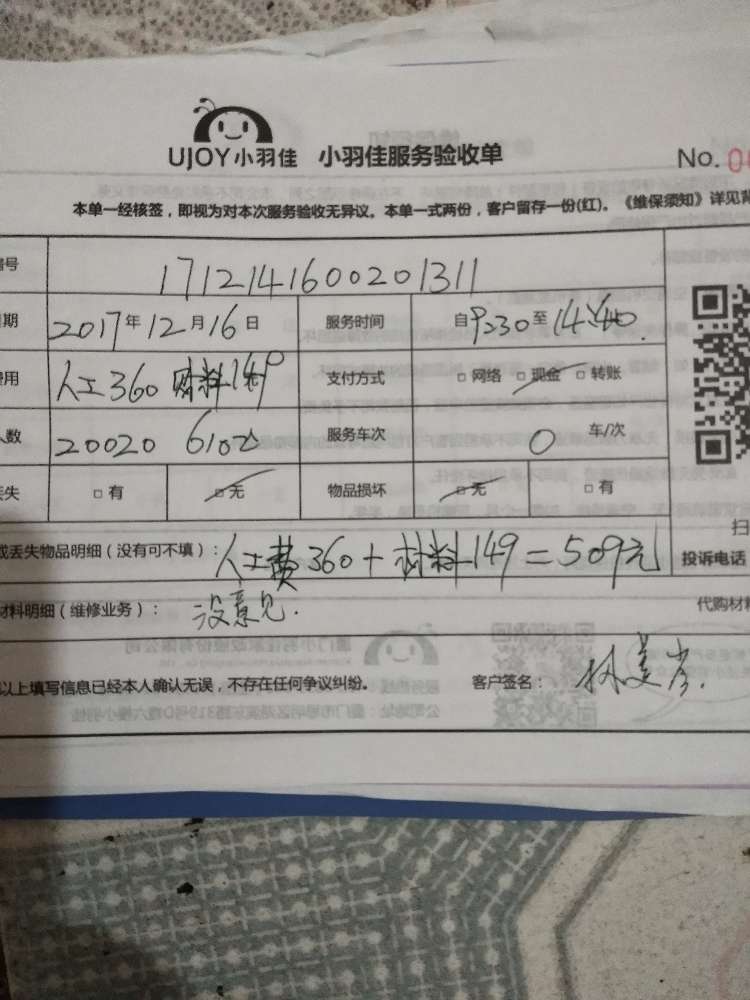 UJOY小羽佳 小羽佳服务验收单 No. 0
本单一经核签，即视为对本次服务验收无异议。本单一式两份，客户留存一份(红)。《维保须知》详见背
号 1712141600201311
期 2017年12月16日 服务时间 自9:30至14:40
费用 人工360 材料149 支付方式 □网络 □现金 □转账
人数 20020 服务车次 0 车/次
丢失 □有 □无 物品损坏 □无 □有
或丢失物品明细（没有可不填）： 人工费360+材料149=509元 投诉电话
材料明细（维修业务）： 没意见. 代购材料
以上填写信息已经本人确认无误，不存在任何争议纠纷。 客户签名：